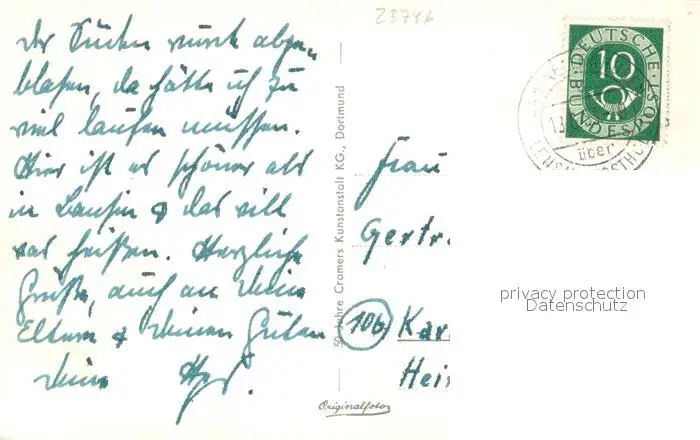 23746
Der Süden wurde abge-
blasen, da hätte ich zu
viel laufen müssen.
Hier ist es schöner als
in Lausin & das will
was heißen. Herzliche
Grüße, auch an Deine
Eltern & Deinen Guten
Deine
50 Jahre Cramers Kunstanstalt KG., Dortmund
Originalfoto
Frau
Gertr.
10b Kar
Hei
DEUTSCHE
10
BUNDESPOST
13
über
privacy protection
Datenschutz